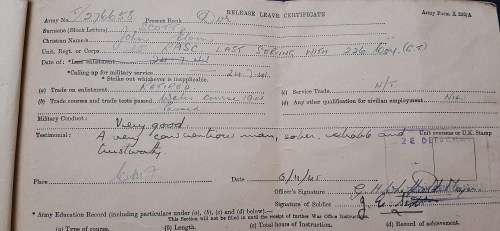 RELEASE LEAVE CERTIFICATE Army Form X 202/A
Army No. T/276658 Present Rank Dvr
Surname (Block Letters)
Christian Name/s John
Unit, Regt. or Corps RASC LAST SERVING WITH 226 Coy. (G T)
Date of: * Last enlistment 24 7 41
*Calling up for military service 24. 7. 41.
* Strike out whichever is inapplicable.
(a) Trade on enlistment (c) Service Trade N/T
(b) Trade courses and trade tests passed Course 1941 (d) Any other qualification for civilian employment Nil
Passed
Military Conduct: Very good
Testimonial: A very conscientious man, sober, reliable and
trustworthy
Unit overseas or U.K. Stamp
Place Date 6/11/45
Officer's Signature Major
Signature of Soldier
* Army Education Record (including particulars under (a), (b), (c) and (d) below):—
This Section will not be filled in until the receipt of further War Office Instructions.
(a) Type of course. (b) Length. (c) Total hours of Instruction. (d) Record of achievement.